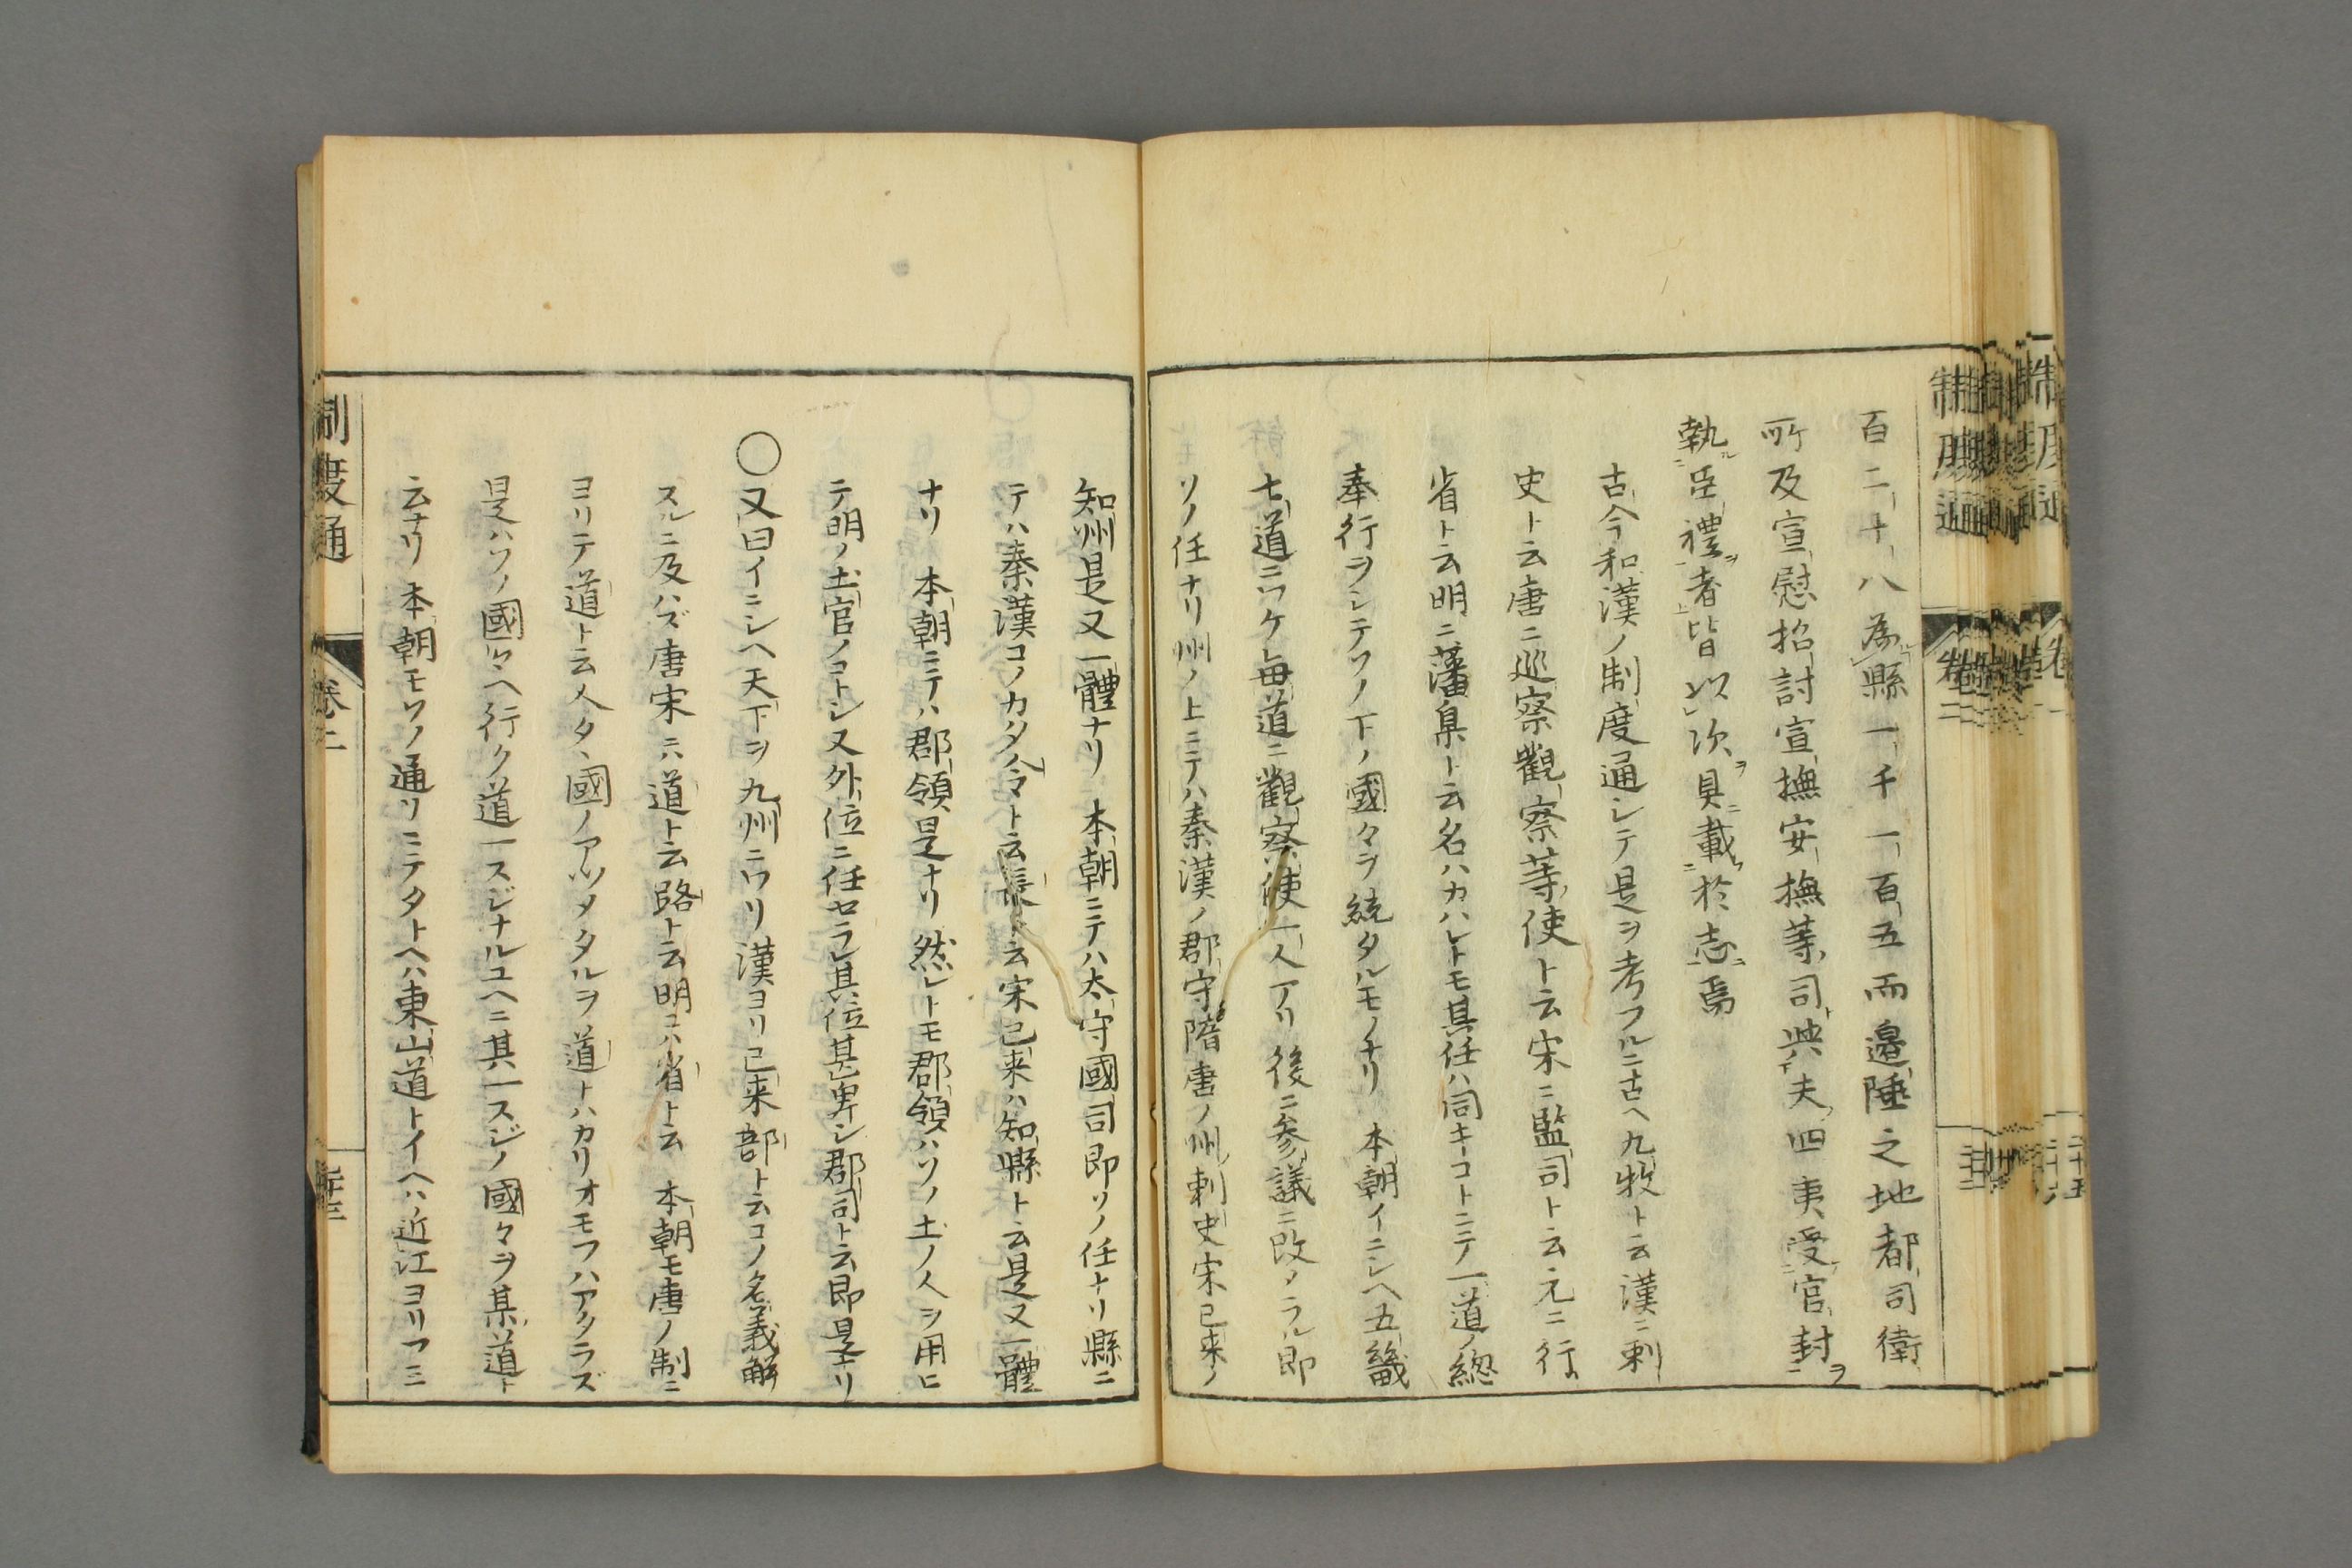 百二十八為縣一千一百五而邊陲之地都司衛
所及宣慰招討宣撫安撫等司與夫四夷受官封
執臣禮者皆以次具載於志焉
古今和漢ノ制度通シテ是ヲ考フルニ古ヘ九牧ト云漢ニ刺
史ト云唐ニ巡察觀察等使ト云宋ニ監司ト云元ニ行
省ト云明ニ藩臬ト云名ハカハレトモ其任ハ同キコトニテ一道ノ總
奉行ヲシテソノ下ノ國々ヲ統タルモノナリ 本朝イニシヘ五畿
七道ニワケ毎道ニ觀察使一人アリ後ニ参議ニ改メラル即
ソノ任ナリ州ノ上ニテハ秦漢ノ郡守隋唐ノ州刺史宋已来ノ
知州是又一體ナリ 本朝ニテハ太守國司即ソノ任ナリ縣ニ
テハ秦漢コノカタ令ト云長ト云宋已来ハ知縣ト云是又一體
ナリ 本朝ニテハ郡領是ナリ然レトモ郡領ハソノ土ノ人ヲ用ヒ
テ明ノ土官ノコトシ又外位ニ任セラレ其位甚卑シ郡司ト云即是ナリ
○又曰イニシヘ天下ヲ九州ニワリ漢ヨリ已来部ト云コノ名義解
スルニ及ハズ唐宋ニハ道ト云路ト云明ニハ省ト云 本朝モ唐ノ制ニ
ヨリテ道ト云人タヽ國ノアツメタルヲ道トハカリオモフハアタラズ
是ハソノ國々ヘ行ク道一スジナルユヘニ其一スジノ國々ヲ某道ト
云ナリ 本朝モソノ通リニテタトヘハ東山道トイヘハ近江ヨリフミ
制度通 卷二